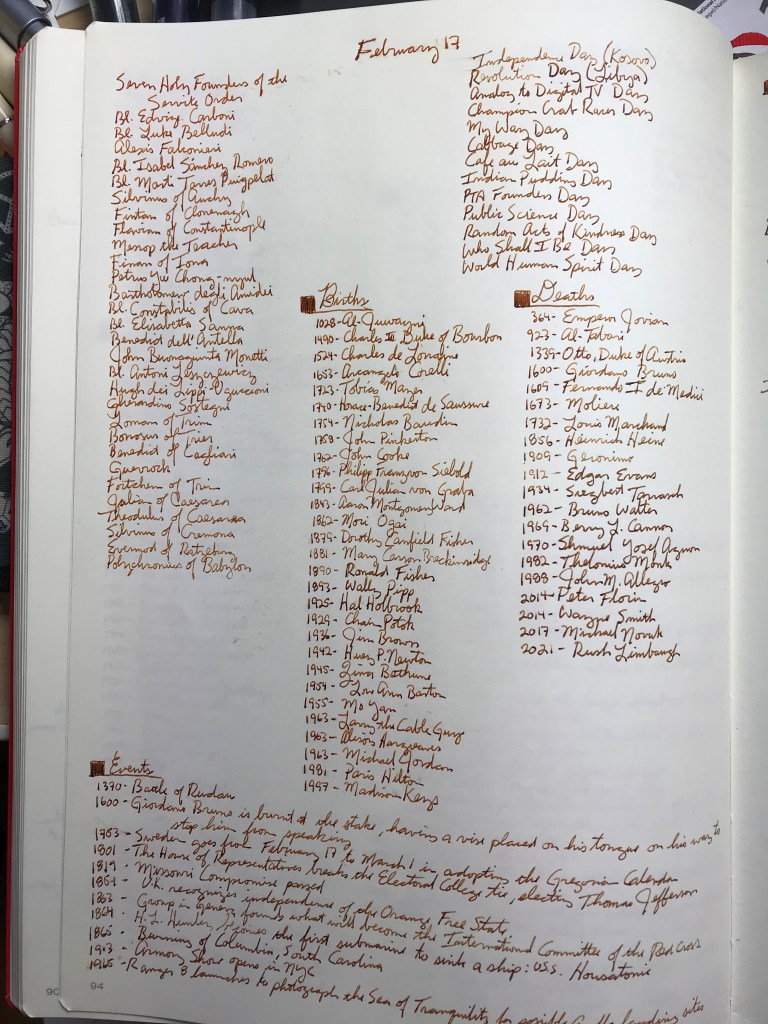 February 17
Seven Holy Founders of the
Servite Order
Bl. Edvige Carboni
Bl. Luke Belludi
Alexis Falconieri
Bl. Isabel Sánchez Romero
Bl. Martí Tarres Puigpelat
Silvinus of Auchy
Fintan of Clonenagh
Flavian of Constantinople
Mesrop the Teacher
Finan of Iona
Petrus Yu Chong-nyul
Bartholomew degli Amidei
Bl. Constabilis of Cava
Bl. Elisabetta Sanna
Benedict dell'Antella
John Buonagiunta Monetti
Bl. Antoni Leszczewicz
Hugh dei Lippi-Uguccioni
Gherardino Sostegni
Loman of Trim
Bonosus of Trier
Benedict of Cagliari
Guevrock
Fortchern of Trim
Julian of Caesarea
Theodulus of Caesarea
Silvinus of Cremona
Evermod of Ratzeburg
Polychronius of Babylon
Independence Day (Kosovo)
Revolution Day (Libya)
Analog to Digital TV Day
Champion Crab Races Day
My Way Day
Cabbage Day
Cafe au Lait Day
Indian Pudding Day
PTA Founders Day
Public Science Day
Random Acts of Kindness Day
Who Shall I Be Day
World Human Spirit Day
Births
1028-Al-Juwayni
1490-Charles III, Duke of Bourbon
1524-Charles de Lorraine
1653-Arcangelo Corelli
1723-Tobias Mayer
1740-Horace-Benedict de Saussure
1754-Nicholas Baudin
1758-John Pinkerton
1762-John Cooke
1796-Philipp Franz von Siebold
1799-Carl Julian von Graba
1843-Aaron Montgomery Ward
1862-Mori Ogai
1879-Dorothy Canfield Fisher
1881-Mary Carson Breckinridge
1890-Ronald Fisher
1893-Wally Pipp
1925-Hal Holbrook
1929-Chaim Potok
1936-Jim Brown
1942-Huey P. Newton
1945-Zina Bethune
1954-Lou Ann Barton
1955-Mo Yan
1963-Larry the Cable Guy
1963-Alison Hargreaves
1963-Michael Jordan
1981-Paris Hilton
1997-Madison Keys
Deaths
364-Emperor Jovian
923-Al-Tabari
1339-Otto, Duke of Austria
1600-Giordano Bruno
1609-Fernando I de'Medici
1673-Moliere
1732-Louis Marchand
1856-Heinrich Heine
1909-Geronimo
1912-Edgar Evans
1934-Siegbert Tarrasch
1962-Bruno Walter
1969-Berry L. Cannon
1970-Shmuel Yosef Agnon
1982-Thelonius Monk
1988-John M. Allegro
2014-Peter Florin
2014-Wayne Smith
2017-Michael Novak
2021-Rush Limbaugh
Events
1370-Battle of Rudau
1600-Giordano Bruno is burnt at the stake, having a vise placed on his tongue on his way to
stop him from speaking
1753-Sweden goes from February 17 to March 1 in adopting the Gregorian Calendar
1801-The House of Representatives breaks the Electoral College tie, electing Thomas Jefferson
1819-Missouri Compromise passed
1854-U.K. recognizes independence of the Orange Free State
1863-Group in Geneva founds what will become the International Committee of the Red Cross
1864-H.L. Hunley becomes the first submarine to sink a ship: U.S.S. Housatonic
1865-Burning of Columbia, South Carolina
1913-Armory Show opens in NYC
1965-Ranger 8 launches to photograph the Sea of Tranquility for possible landing sites
90
94